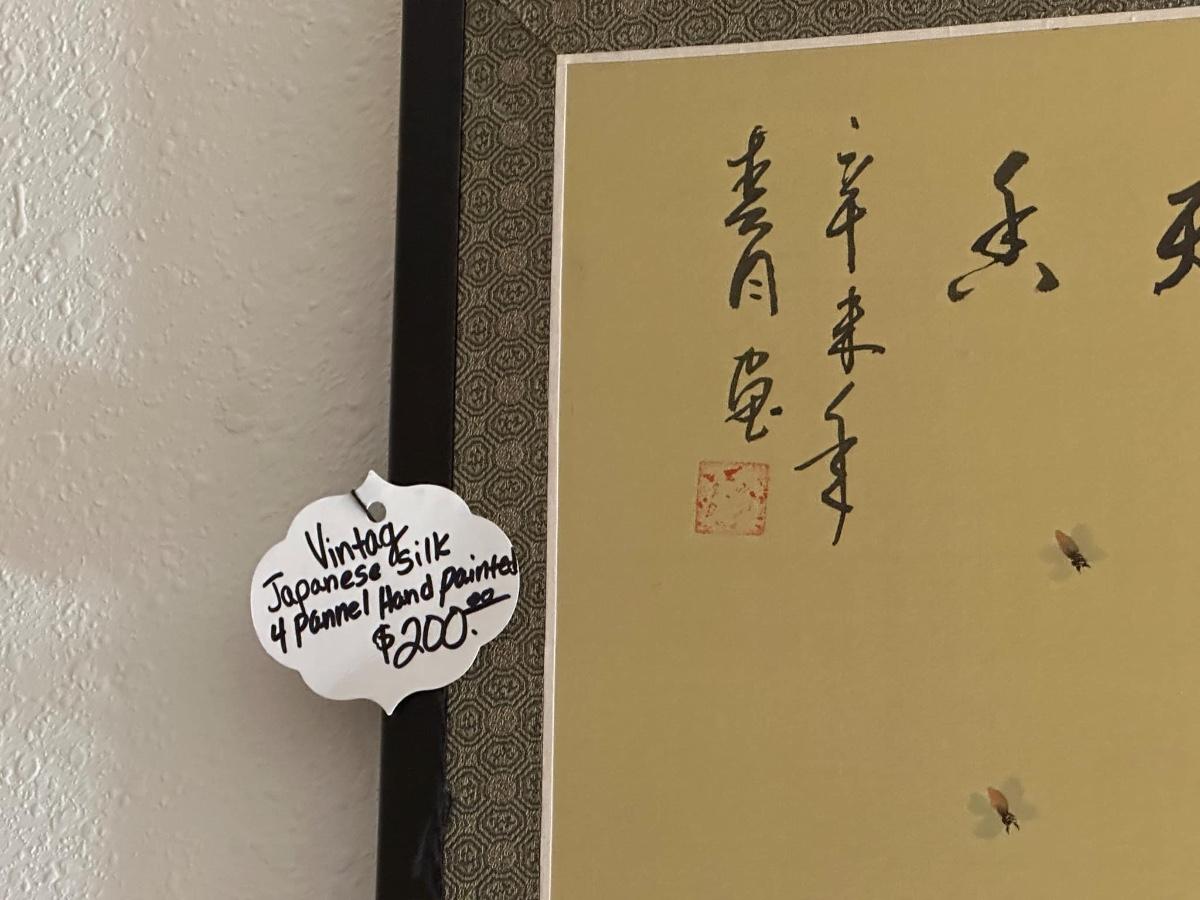 天
香
辛未年
画
Vintag
Japanese Silk
4 Pannel Hand painted
$200.00